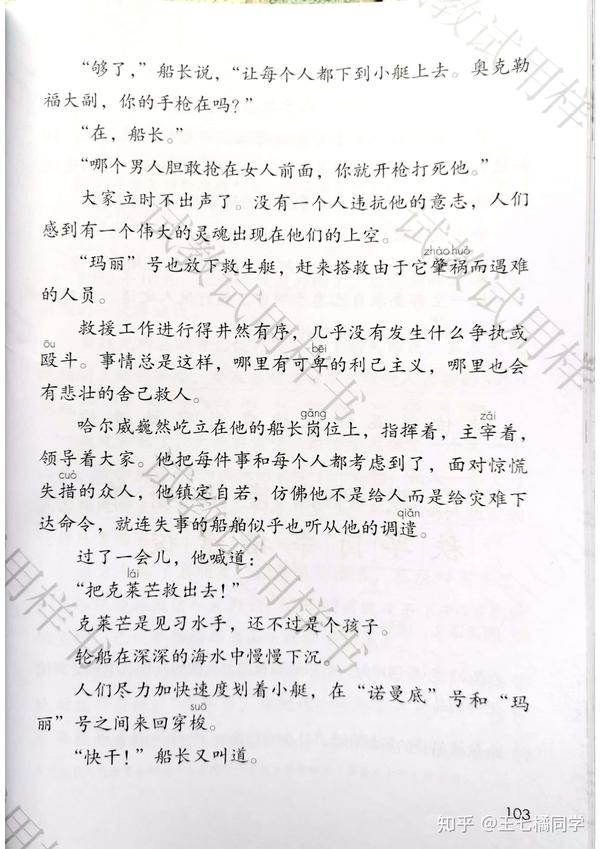 “够了，”船长说，“让每个人都下到小艇上去。奥克勒
福大副，你的手枪在吗？”
“在，船长。”
“哪个男人胆敢抢在女人前面，你就开枪打死他。”
大家立时不出声了。没有一个人违抗他的意志，人们
感到有一个伟大的灵魂出现在他们的上空。
zhào huò
“玛丽”号也放下救生艇，赶来搭救由于它肇祸而遇难
的人员。
救援工作进行得井然有序，几乎没有发生什么争执或
ōu bēi
殴斗。事情总是这样，哪里有可卑的利己主义，哪里也会
有悲壮的舍己救人。
gǎng zǎi
哈尔威巍然屹立在他的船长岗位上，指挥着，主宰着，
领导着大家。他把每件事和每个人都考虑到了，面对惊慌
cuò
失措的众人，他镇定自若，仿佛他不是给人而是给灾难下
qiǎn
达命令，就连失事的船舶似乎也听从他的调遣。
过了一会儿，他喊道：
lái
“把克莱芒救出去！”
克莱芒是见习水手，还不过是个孩子。
轮船在深深的海水中慢慢下沉。
人们尽力加快速度划着小艇，在“诺曼底”号和“玛
suō
丽”号之间来回穿梭。
“快干！”船长又叫道。
103
知乎 @王七橘同学
试教试用样书
试教试用样书
试教试用样书